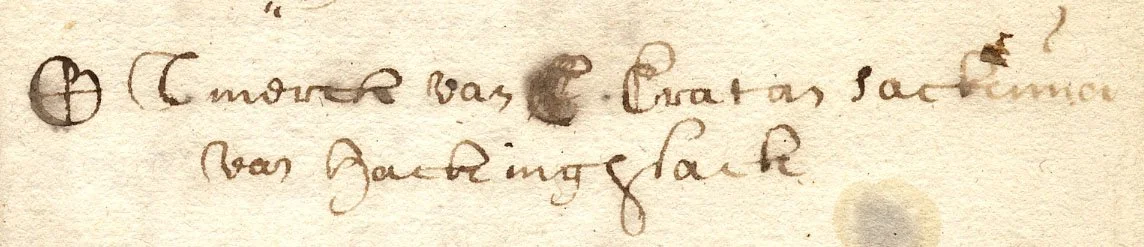 T merck van Eratan sack
van Hackinghsack